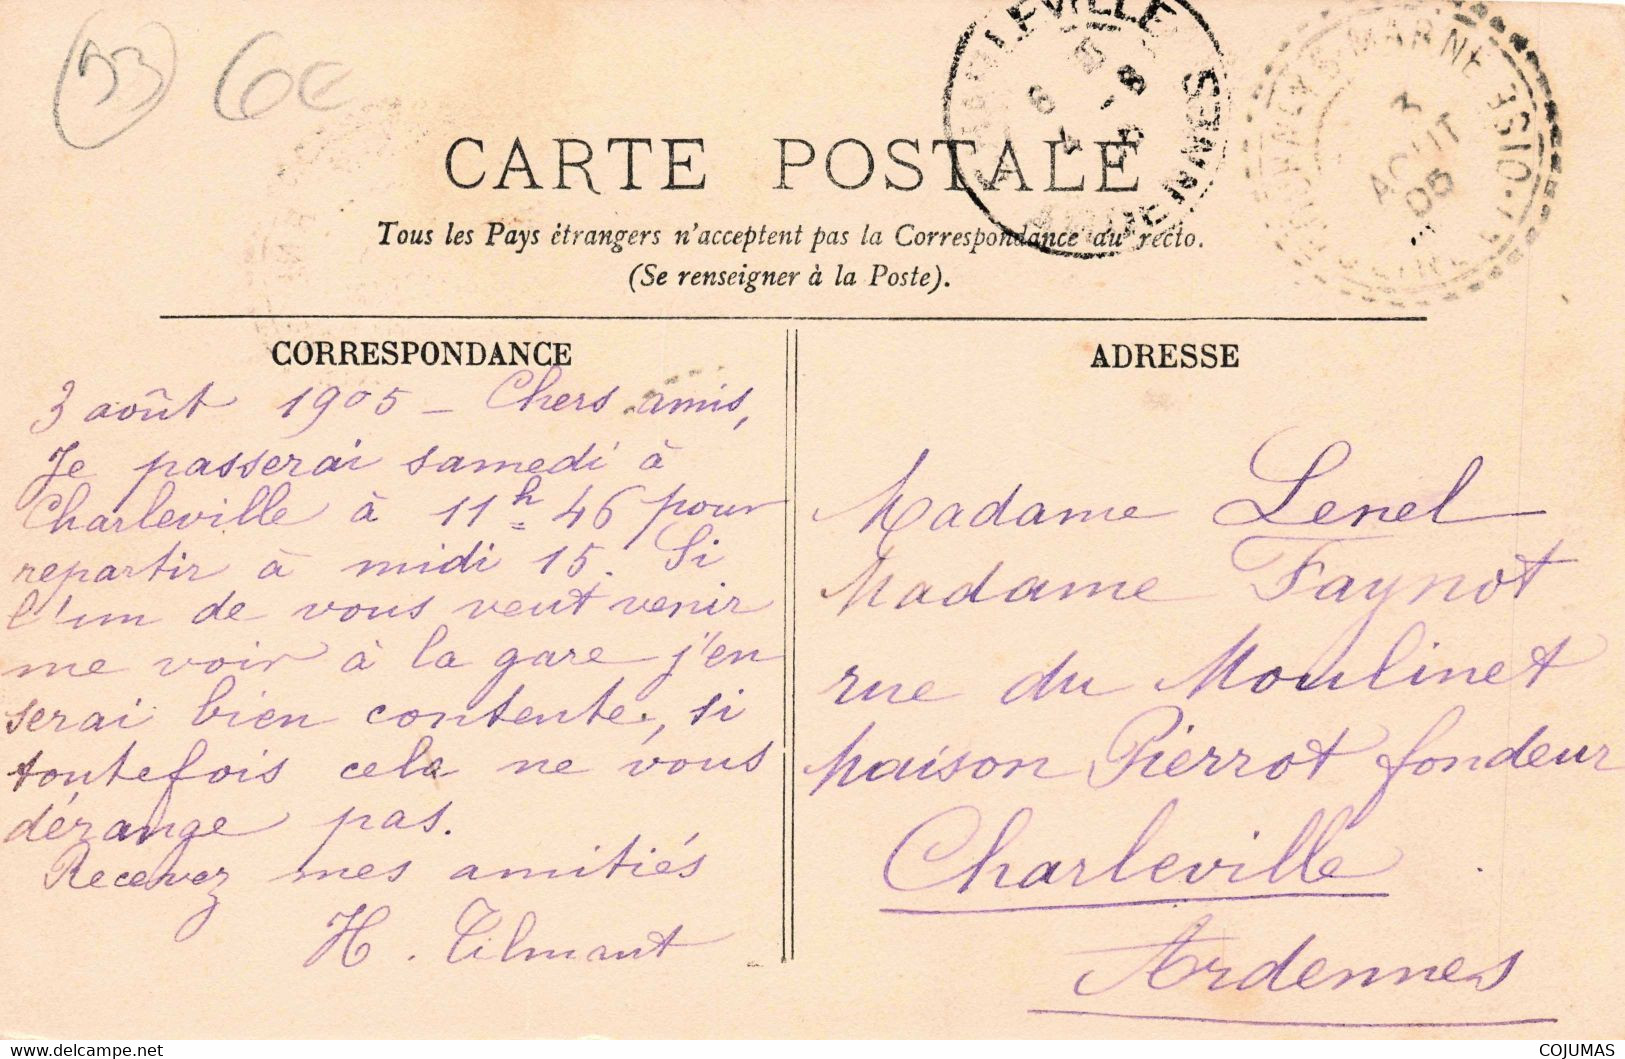 53 6€
CHARLEVILLE
ARDENNES
3
AOUT
05
CARTE POSTALE
Tous les Pays étrangers n'acceptent pas la Correspondance au recto.
(Se renseigner à la Poste).
CORRESPONDANCE
3 août 1905 - Chers amis,
Je passerai samedi à
Charleville à 11h 46 pour
repartir à midi 15. Si
l'un de vous veut venir
me voir à la gare j'en
serai bien contente, si
toutefois cela ne vous
dérange pas.
Recevez mes amitiés
H. Tilmant
ADRESSE
Madame Lenel
Madame Faynot
rue du Moulinet
Maison Pierrot fondeur
Charleville
Ardennes
www.delcampe.net
COJUMAS